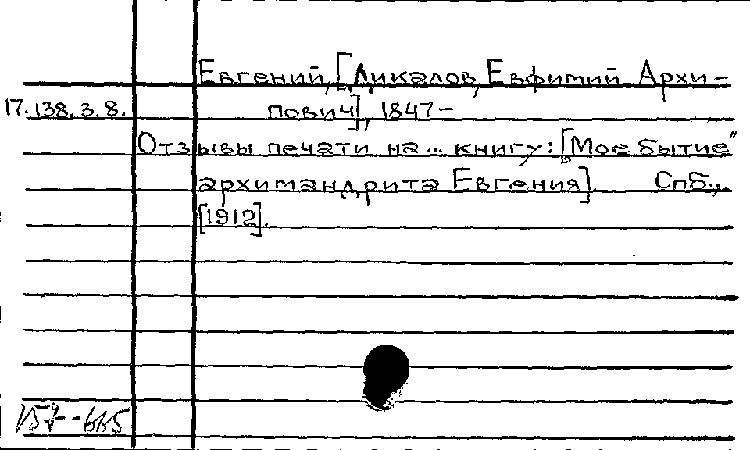 Евгений, [Микалов, Евфимий Архи-
17.138.3.8. пович], 1847-
Отзывы печати на... книгу: ["Мое бытие"
архимандрита Евгения]. Спб.,
[1912].